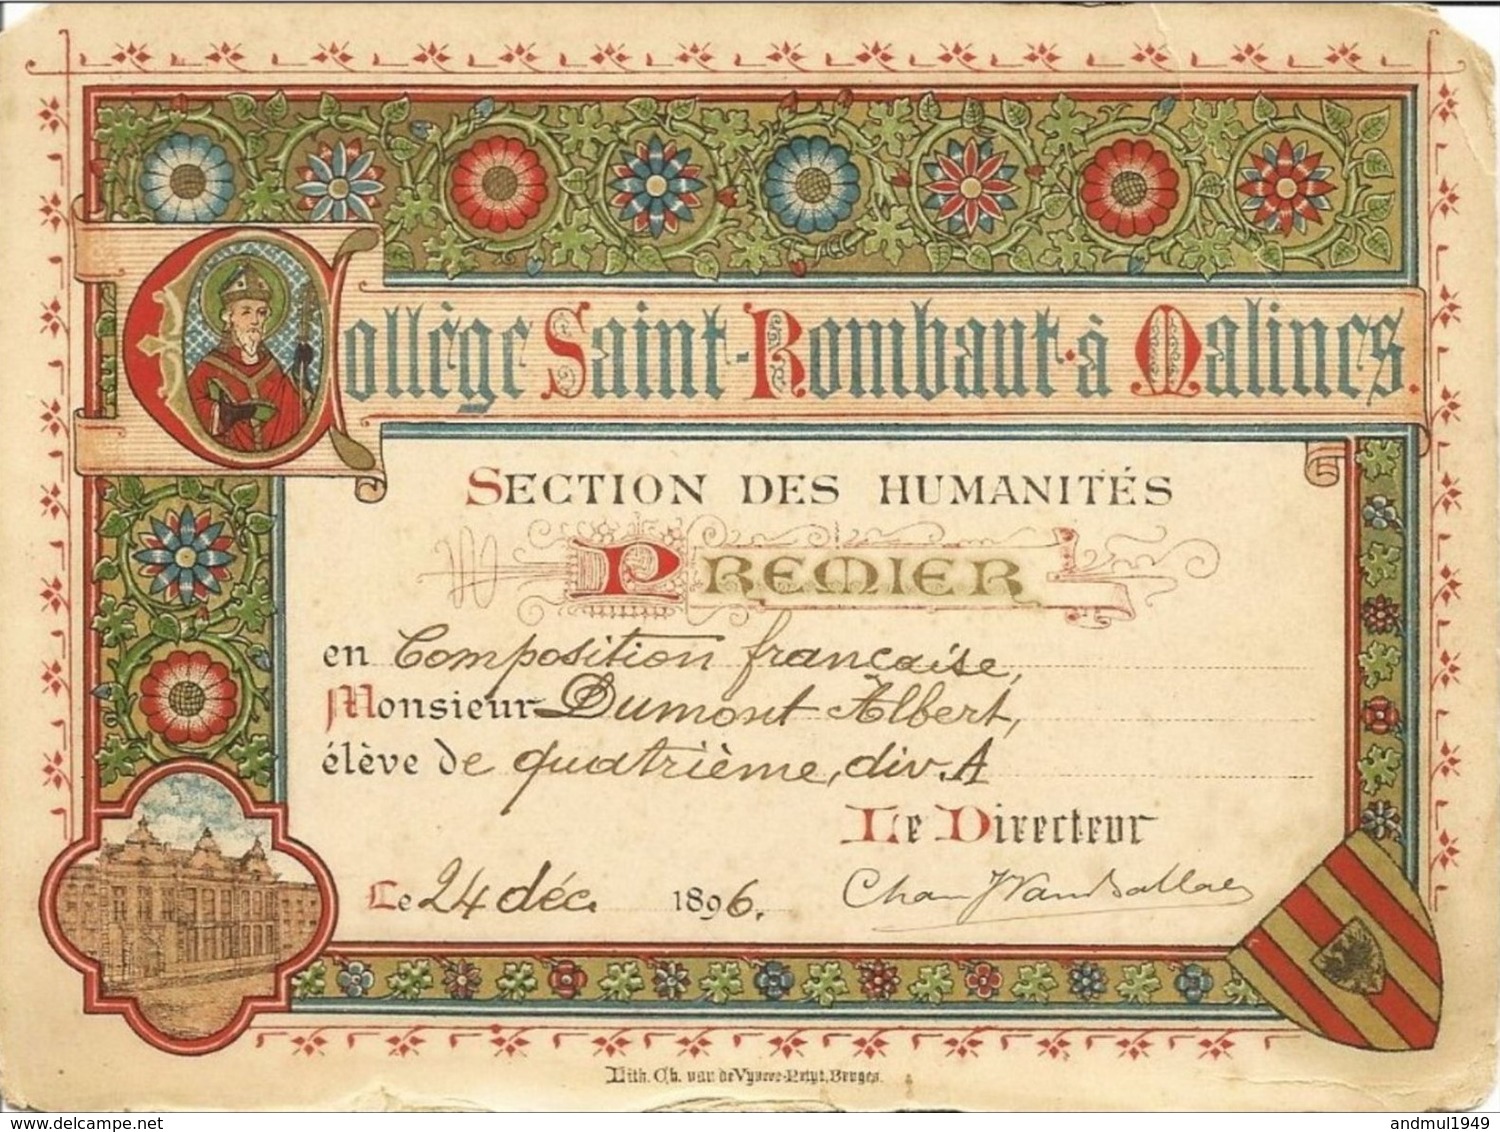 Collège Saint-Rombaut·à Malines.
SECTION DES HUMANITÉS
PREMIER
en Composition française,
Monsieur Dumont Albert,
élève de quatrième, div. A
Le Directeur
Le 24 déc. 1896.
Lith. Ch. van de Vyvere-Petyt, Bruges.
delcampe.net
andmul1949